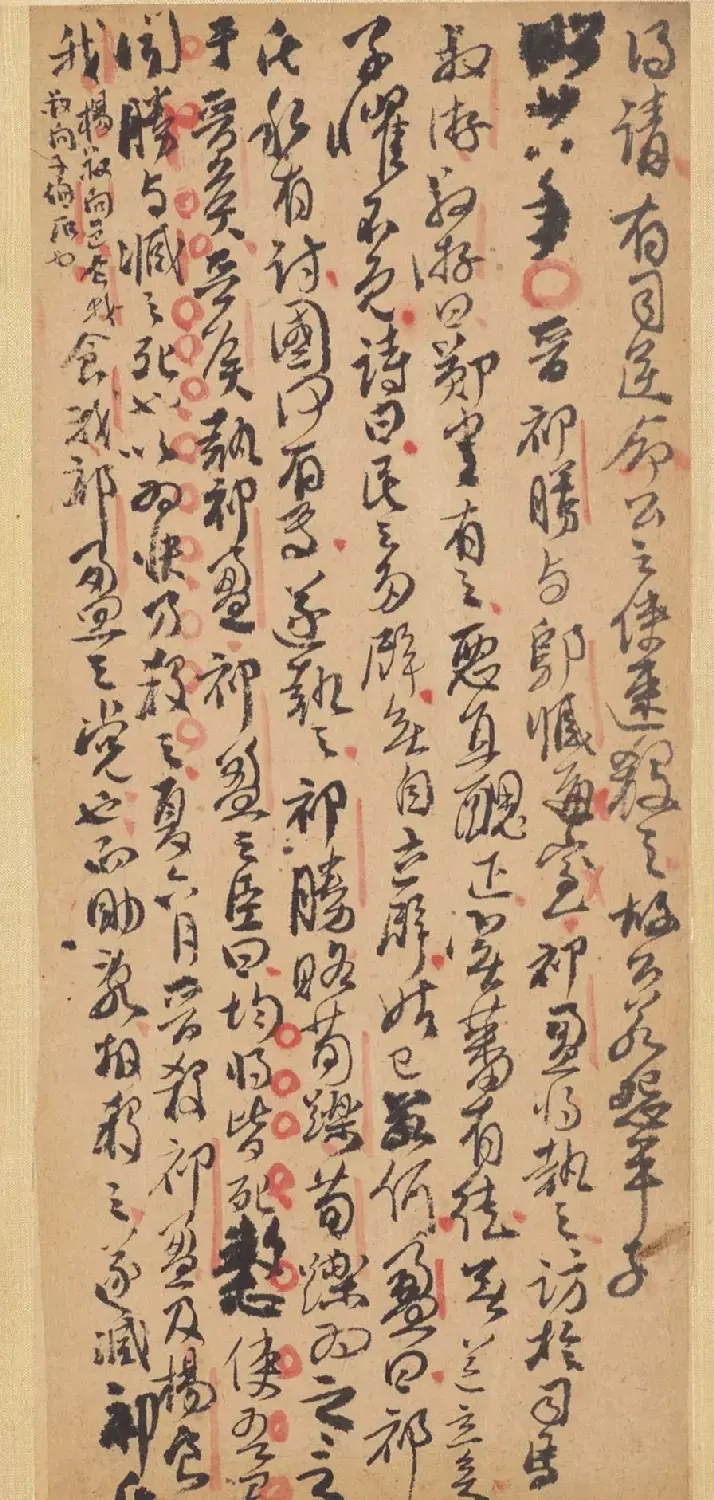 得請有司逆命公之使速殺之故公若怨平子
昭廿八年○晉祁勝与鄔臧通室祁盈將執之訪於司馬
叔游叔游曰鄭書有之惡直醜正實蕃有徒無道立矣
子懼不免詩曰民之多辟無自立辟姑已若何盈曰祁
氏私有討國何有焉遂執之祁勝賂荀躒荀躒為之言
于晉矦晉矦執祁盈祁盈之臣曰均將皆死憖使吾君
聞勝与臧之死也以為快乃殺之夏六月晉殺祁盈及楊食
我
楊叔向邑食我
叔向子伯石也
食我祁盈之党也而助亂故殺之遂滅祁氏